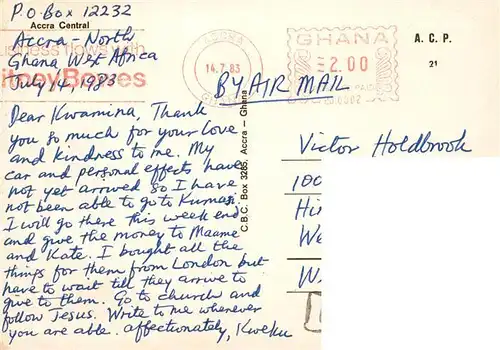 P.O. Box 12232
Accra Central
Accra - North
Ghana West Africa
July 14, 1983
business flows with
Pitney Bowes
ACCRA
14.7.83
GHANA
GHANA
2.00
BY AIR MAIL
A. C. P.
21
Dear Kwamina, Thank
you so much for your love
and kindness to me. My
car and personal effects have
not yet arrived so I have
not been able to go to Kumasi.
I will go there this week end
and give the money to Maame
and Kate. I bought all the
things for them from London but
have to wait till they arrive to
give to them. Go to church and
follow Jesus. Write to me whenever
you are able. affectionately, Kweku
C.B.C. Box 3285, Accra - Ghana
Victor Holdbrook
100
Hi
We
W